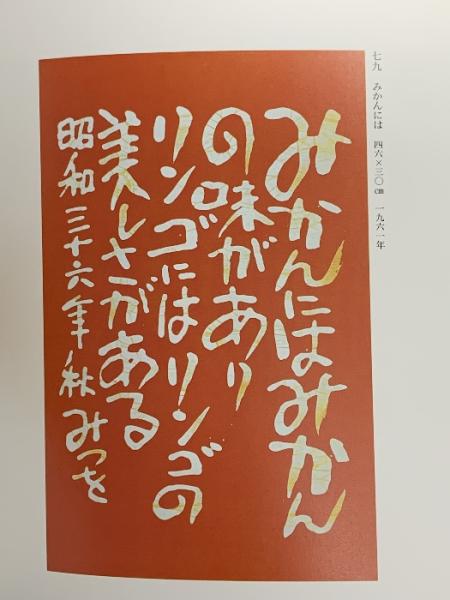 七九　みかんには　四六×三〇cm　一九六一年
みかんにはみかん
の味があり
リンゴにはリンゴの
美しさがある
昭和三十六年秋みつを